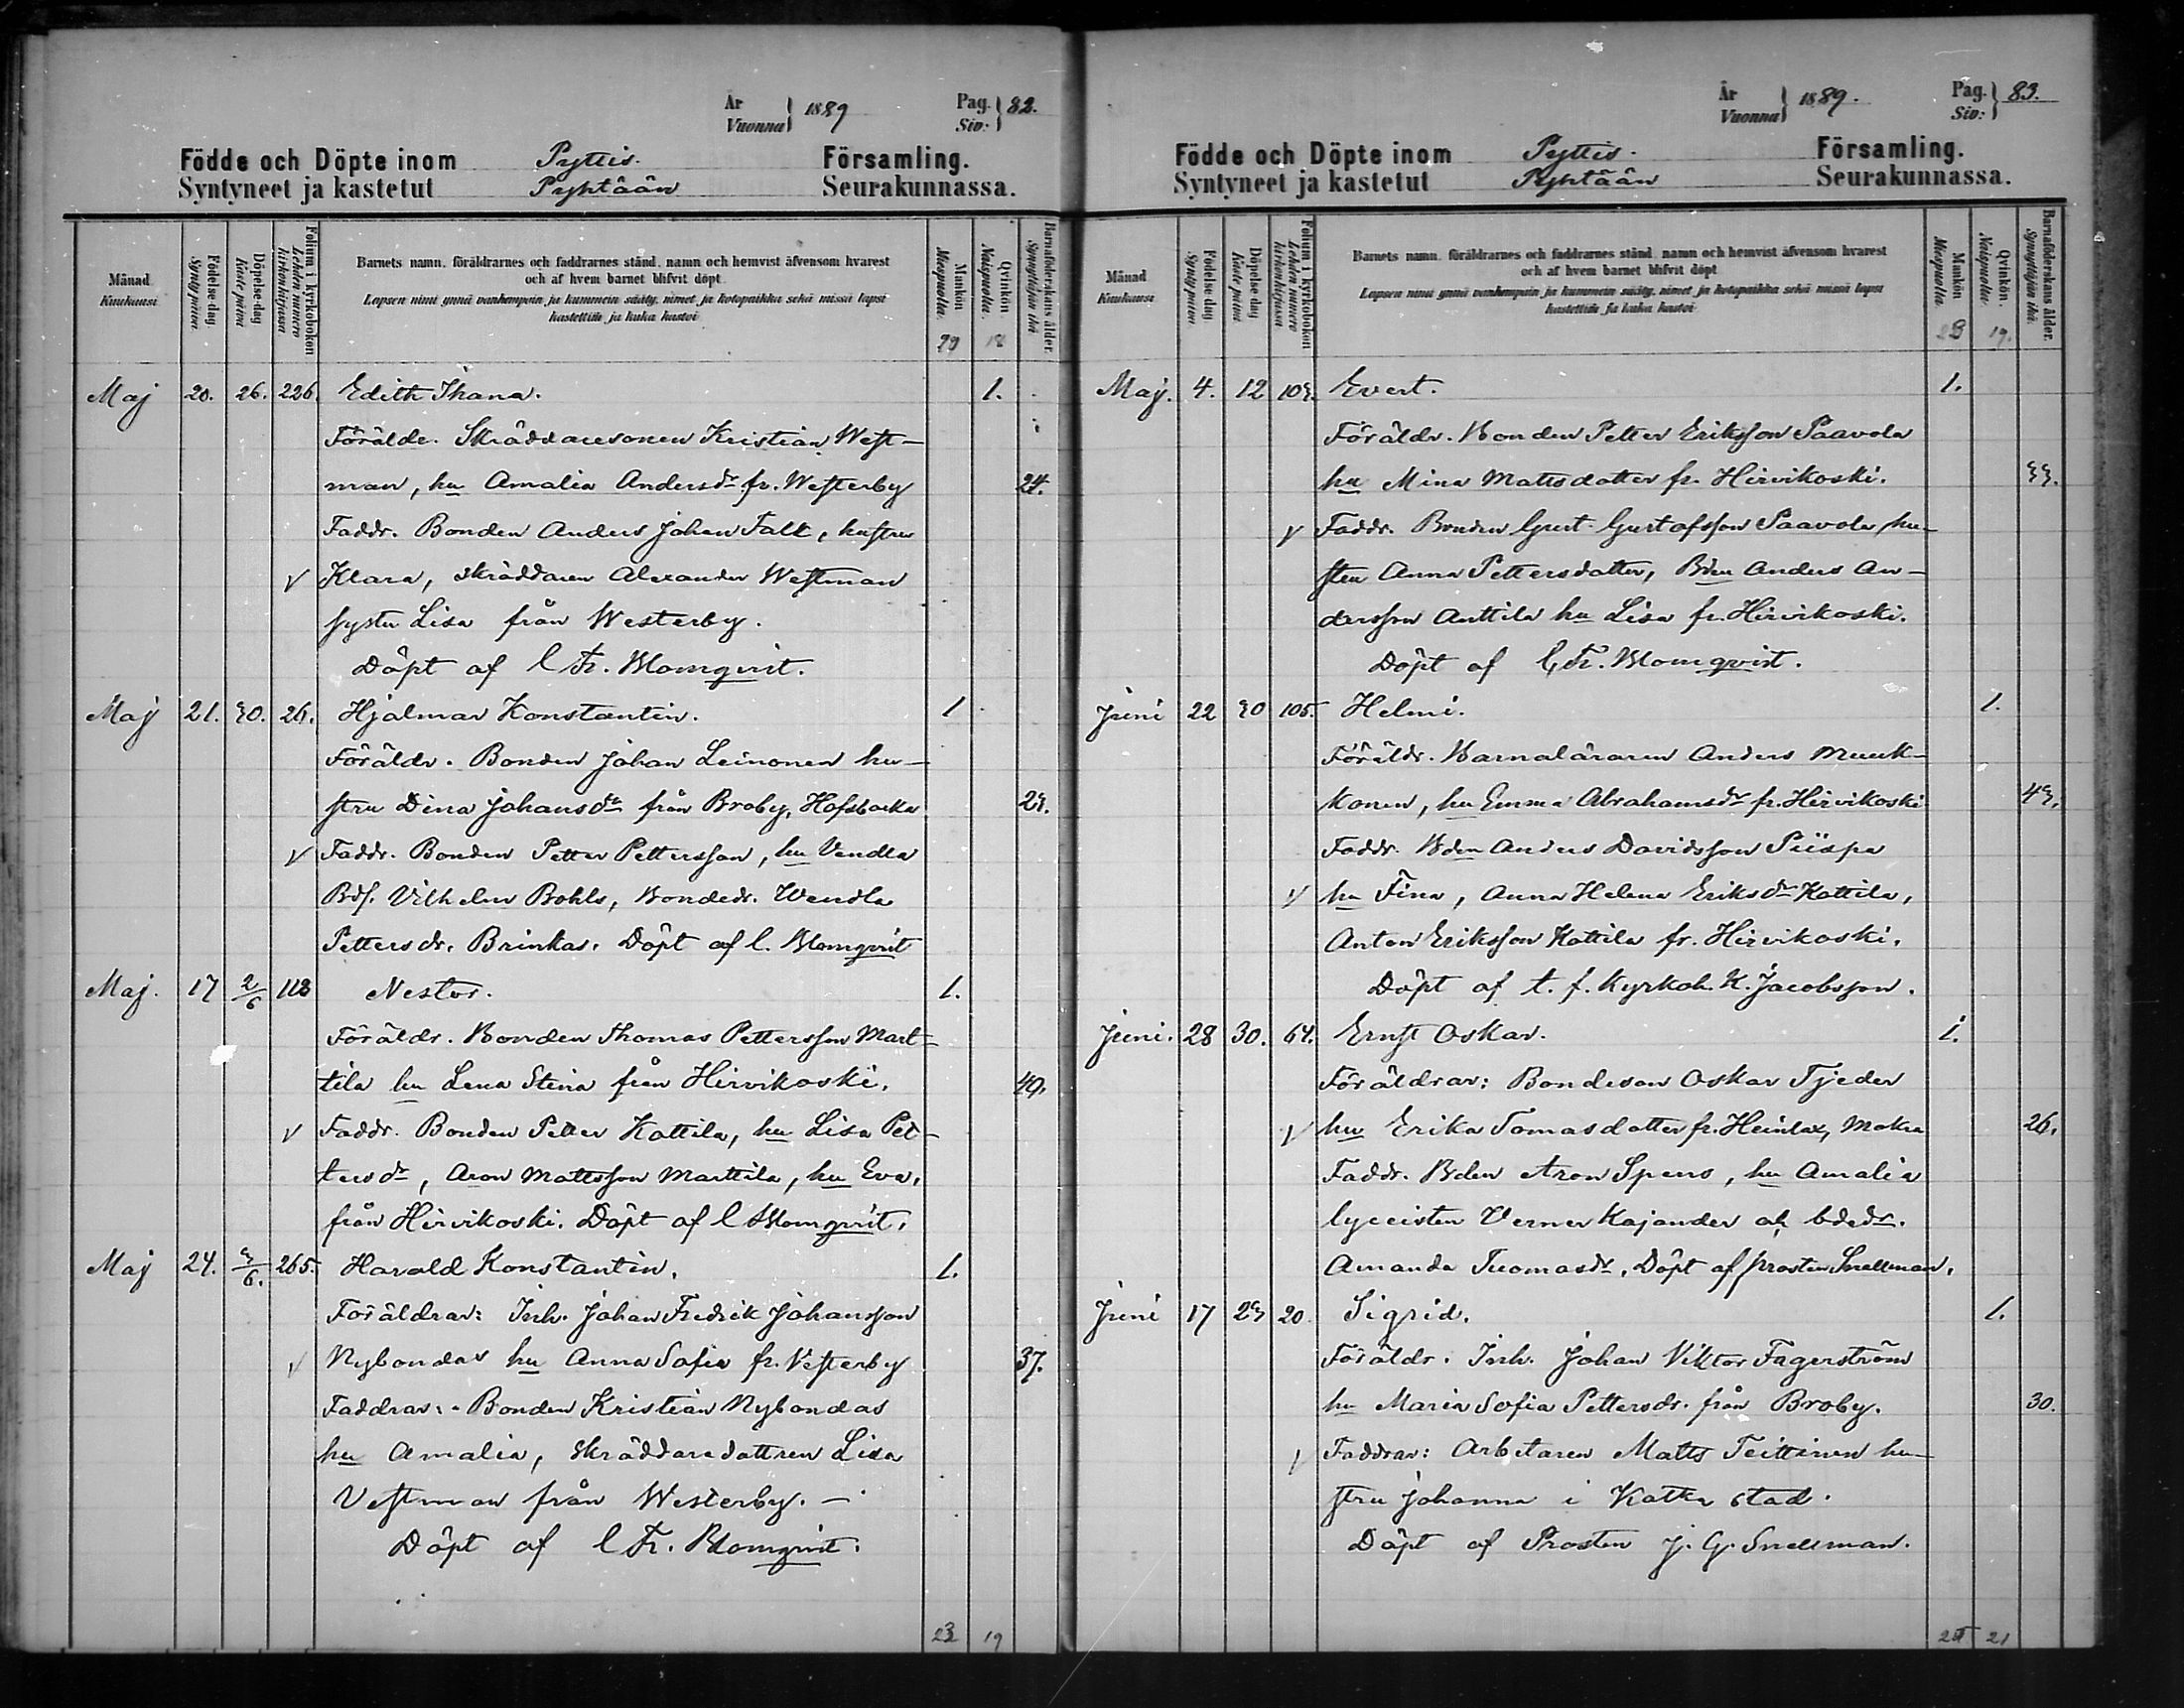 År 1889 Pag. 82.
Vuonna Siv:
Födde och Döpte inom Pyttis. Församling.
Syntyneet ja kastetut Pyhtään Seurakunnassa.
Månad Kuukausi
Födelse dag. Synty päivä
Döpelse dag Kaste päivä
Folium i kyrkoboken Lehden numero kirkonkirjassa
Barnets namn, föräldrarnes och faddrarnes stånd, namn och hemvist äfvensom hvarest
och af hvem barnet blifvit döpt
Lapsen nimi ynnä vanhempain ja kummein sääty, nimet ja kotopaikka sekä missä lapsi
kastettiin ja kuka kastoi
Mankön Miespuolia.
Qvinkön Naispuolia.
Barnaföderskans ålder. Synnyttäjän ikä.
Maj 20. 26. 226. Edith Ihana. 1.
Förälde. Skräddaresonen Kristian West-
man, hu Amalia Andersdr fr. Westerby 24.
Faddr. Bonden Anders Johan Falk, hustru
Klara, skräddaren Alexander Westman
syster Lisa från Westerby.
Döpt af C Fr. Blomqvist.
Maj 21. 30. 26. Hjalmar Konstantin. 1
Föräldr. Bonden Johan Leinonen hu-
stru Dina Johansdr från Broby, Hofsbacka 23.
Faddr. Bonden Petter Pettersson, hu Vendla
Bds. Vilhelm Bohls, Bondedr. Wendla
Pettersdr. Brinkas. Döpt af C. Blomqvist
Maj. 17 2/6 113 Nestor. 1.
Föräldr. Bonden Thomas Pettersson Mart-
tila hu Lena Stina från Hirvikoski. 40.
Faddr. Bonden Petter Kottila, hu Lisa Pet-
tersdr, Aron Mattsson Marttila, hu Eva,
från Hirvikoski. Döpt af C Blomqvist.
Maj 24. 3/6. 265. Harald Konstantin. 1.
Föräldrar: Inh. Johan Fredrik Johansson
Nybondas hu Anna Sofia fr. Vesterby 37.
Faddrar: Bonden Kristian Nybondas
hu Amalia, skräddaredottren Lisa
Vestman från Westerby. –
Döpt af C Fr. Blomqvist.
23 19
År 1889. Pag. 83.
Vuonna Siv:
Födde och Döpte inom Pyttis. Församling.
Syntyneet ja kastetut Pyhtään Seurakunnassa.
Månad Kuukausi
Födelse dag. Synty päivä
Döpelse dag Kaste päivä
Folium i kyrkoboken Lehden numero kirkonkirjassa
Barnets namn, föräldrarnes och faddrarnes stånd, namn och hemvist äfvensom hvarest
och af hvem barnet blifvit döpt
Lapsen nimi ynnä vanhempain ja kummein sääty, nimet ja kotopaikka sekä missä lapsi
kastettiin ja kuka kastoi
Mankön Miespuolia. 23
Qvinkön. Naispuolia. 19.
Barnaföderskans ålder. Synnyttäjän ikä.
Maj. 4. 12 103. Evert. 1.
Föräldr. Bonden Petter Eriksson Paavola
hu Mina Mattsdotter fr. Hirvikoski. 33.
Faddr. Bonden Gust. Gustafsson Paavola, hu-
stru Anna Pettersdotter, Bden Anders An-
dersson Anttila hu Lisa fr. Hirvikoski.
Döpt af C, Fr. Blomqvist.
Juni 22 30 105. Helmi. 1.
Föräldr. Barnaläraren Anders Munk-
konen, hu Emma Abrahamsdr fr. Hirvikoski 43.
Faddr. Bden Anders Davidsson Piispa
hu Fina, Anna Helena Eriksdr Kottila,
Anton Eriksson Kottila fr. Hirvikoski.
Döpt af t. f. Kyrkoh. K. Jacobsson.
Juni. 28 30. 64. Ernst Oskar. 1.
Föräldrar: Bondeson Oskar Tjeder
hu Erika Tomasdotter fr. Heinlax, Mokra 26.
Faddr. Bden Aron Spens, hu Amalia
lyceisten Verner Kajander och bdedr.
Amanda Tuomasdr. Döpt af prosten Snellman.
Juni 17 23 20 Sigrid. 1.
Föräldr. Inh. Johan Viktor Fagerström
hu Maria Sofia Pettersdr. från Broby. 30.
Faddrar: Arbetaren Matts Teittinen hu-
stru Johanna i Kotka stad.
Döpt af Prosten J. G. Snellman.
21